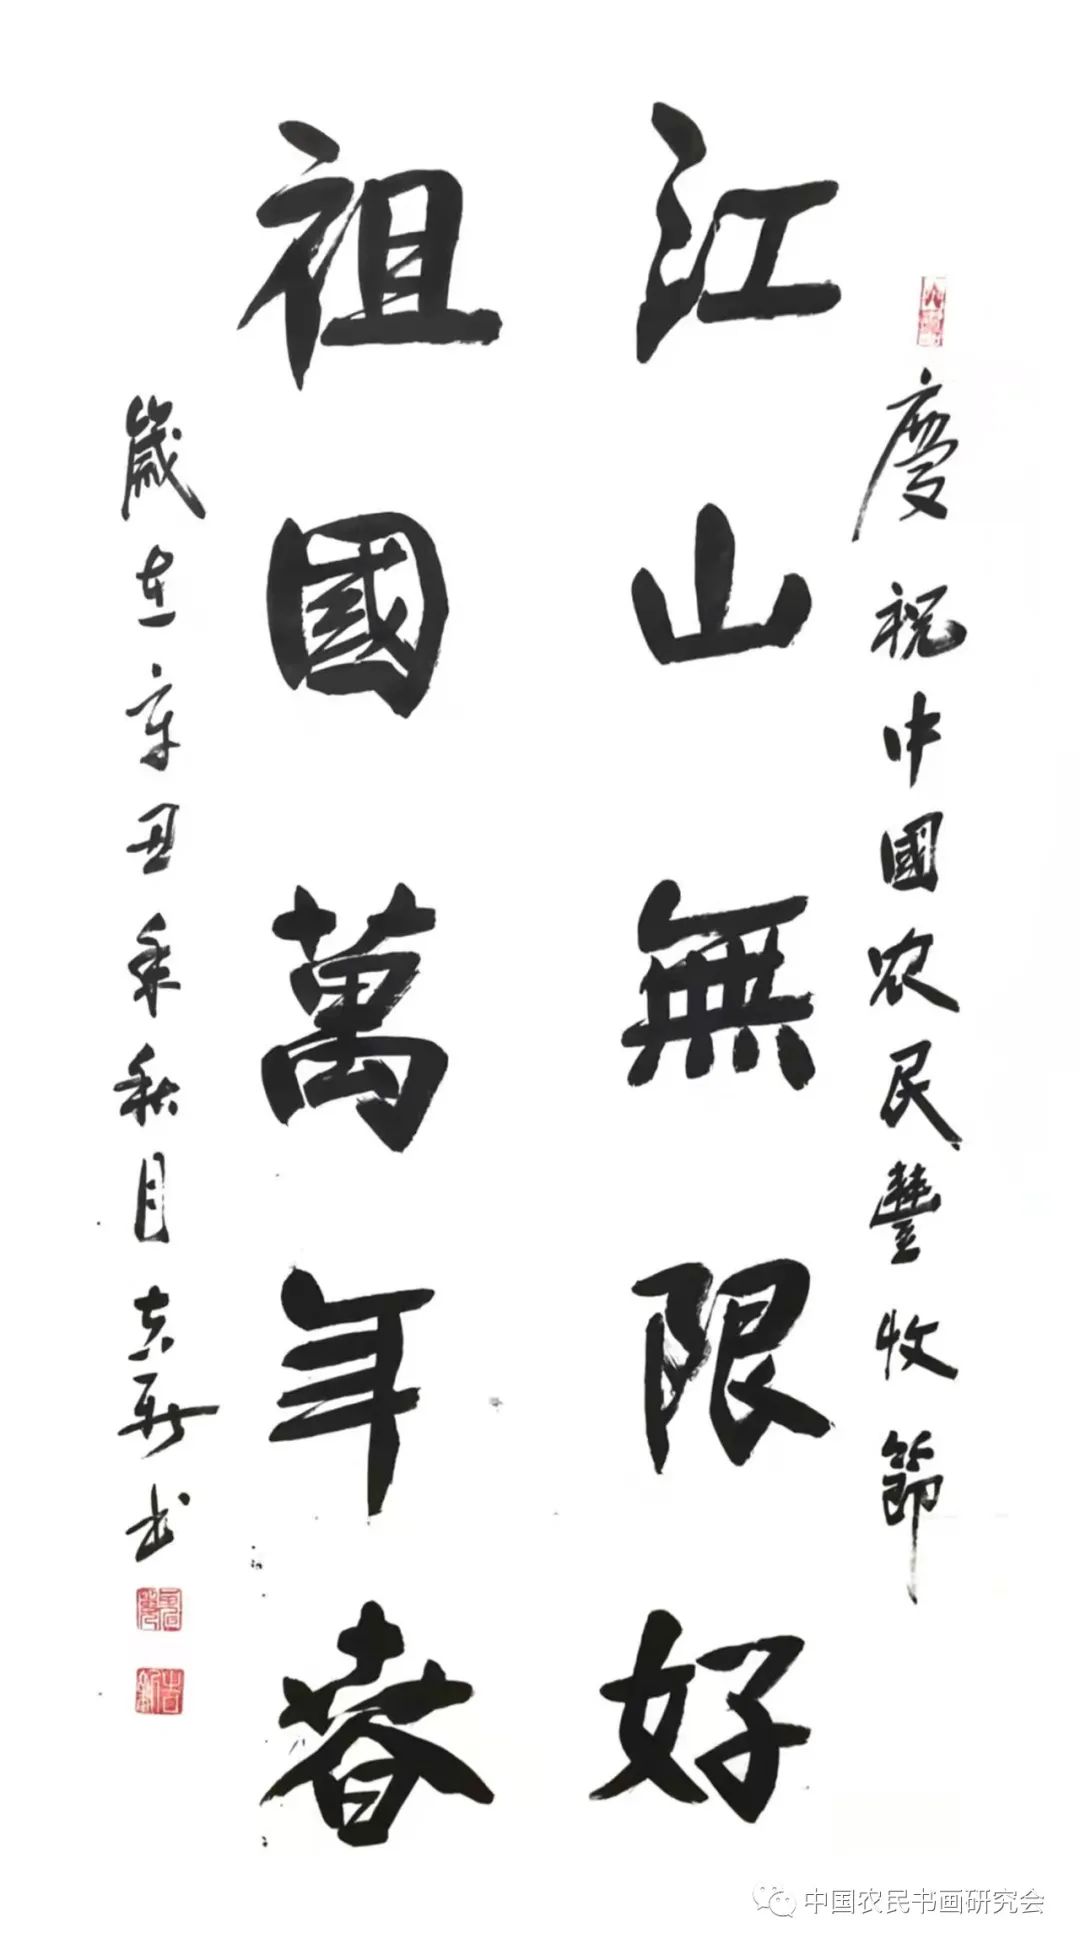 慶祝中國农民豐收節
江山無限好
祖國萬年春
歲在辛丑年秋月吉新书
中国农民书画研究会